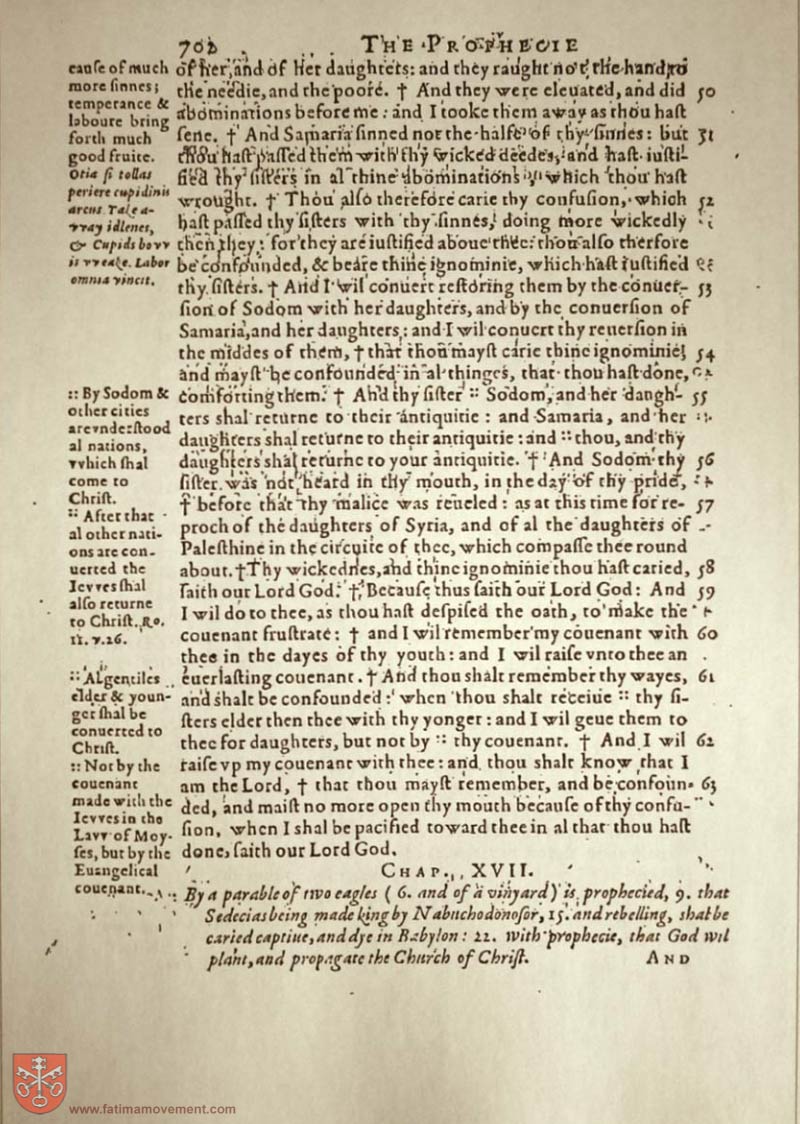 702 THE PROPHECIE
cause of much
more sinnes;
temperance &
laboure bring
forth much
good fruite.
Otia si tollas
periere cupidinis
arcus Take a-
vvay idlenes,
& Cupids bovv
is vveake. Labor
omnia vincit.
:: By Sodom &
other cities
are vnderstood
al nations,
vvhich shal
come to
Christ.
:: After that
al other nati-
ons are con-
uerted the
Ievves shal
also returne
to Christ. Ro.
11. v. 26.
:: Al gentiles
elder & youn-
ger shal be
conuerted to
Christ.
:: Not by the
couenant
made with the
Ievves in the
Lavv of Moy-
ses, but by the
Euangelical
couenant.
of her, and of her daughters: and they raught not the hand to
the needie, and the poore. † And they were eleuated, and did 50
abominations before me: and I tooke them away as thou hast
sene. † And Samaria sinned not the halfe of thy sinnes: but 51
thou hast passed them with thy wicked deedes, and hast iusti-
fied thy sisters in al thine abominations, which thou hast
wrought. † Thou also therefore carie thy confusion, which 52
hast passed thy sisters with thy sinnes, doing more wickedly
then they: for they are iustified aboue thee: thou also therfore
be confounded, & beare thine ignominie, which hast iustified
thy sisters. † And I wil conuert restoring them by the conuer- 53
sion of Sodom with her daughters, and by the conuersion of
Samaria, and her daughters: and I wil conuert thy reuersion in
the middes of them, † that thou mayst carie thine ignominie, 54
and mayst be confounded in al thinges, that thou hast done,
comforting them. † And thy sister :: Sodom, and her daugh- 55
ters shal returne to their antiquitie: and Samaria, and her
daughters shal returne to their antiquitie: and :: thou, and thy
daughters shal returne to your antiquitie. † And Sodom thy 56
sister was not heard in thy mouth, in the day of thy pride,
† before that thy malice was reueled: as at this time for re- 57
proch of the daughters of Syria, and of al the daughters of
Palesthine in the circuite of thee, which compasse thee round
about. † Thy wickednes, and thine ignominie thou hast caried, 58
saith our Lord God. † Because thus saith our Lord God: And 59
I wil do to thee, as thou hast despised the oath, to make the
couenant frustrate: † and I wil remember my couenant with 60
thee in the dayes of thy youth: and I wil raise vnto thee an
euerlasting couenant. † And thou shalt remember thy wayes, 61
and shalt be confounded: when thou shalt receiue :: thy si-
sters elder then thee with thy yonger: and I wil geue them to
thee for daughters, but not by :: thy couenant. † And I wil 62
raise vp my couenant with thee: and thou shalt know that I
am the Lord, † that thou mayst remember, and be confoun- 63
ded, and maist no more open thy mouth because of thy confu-
sion, when I shal be pacified toward thee in al that thou hast
done, saith our Lord God.
CHAP. XVII.
By a parable of two eagles ( 6. and of a vinyard) is prophecied, 9. that
Sedecias being made king by Nabuchodonosor, 15. and rebelling, shal be
caried captiue, and dye in Babylon: 22. With prophecie, that God wil
plant, and propagate the Church of Christ.
AND
www.fatimamovement.com